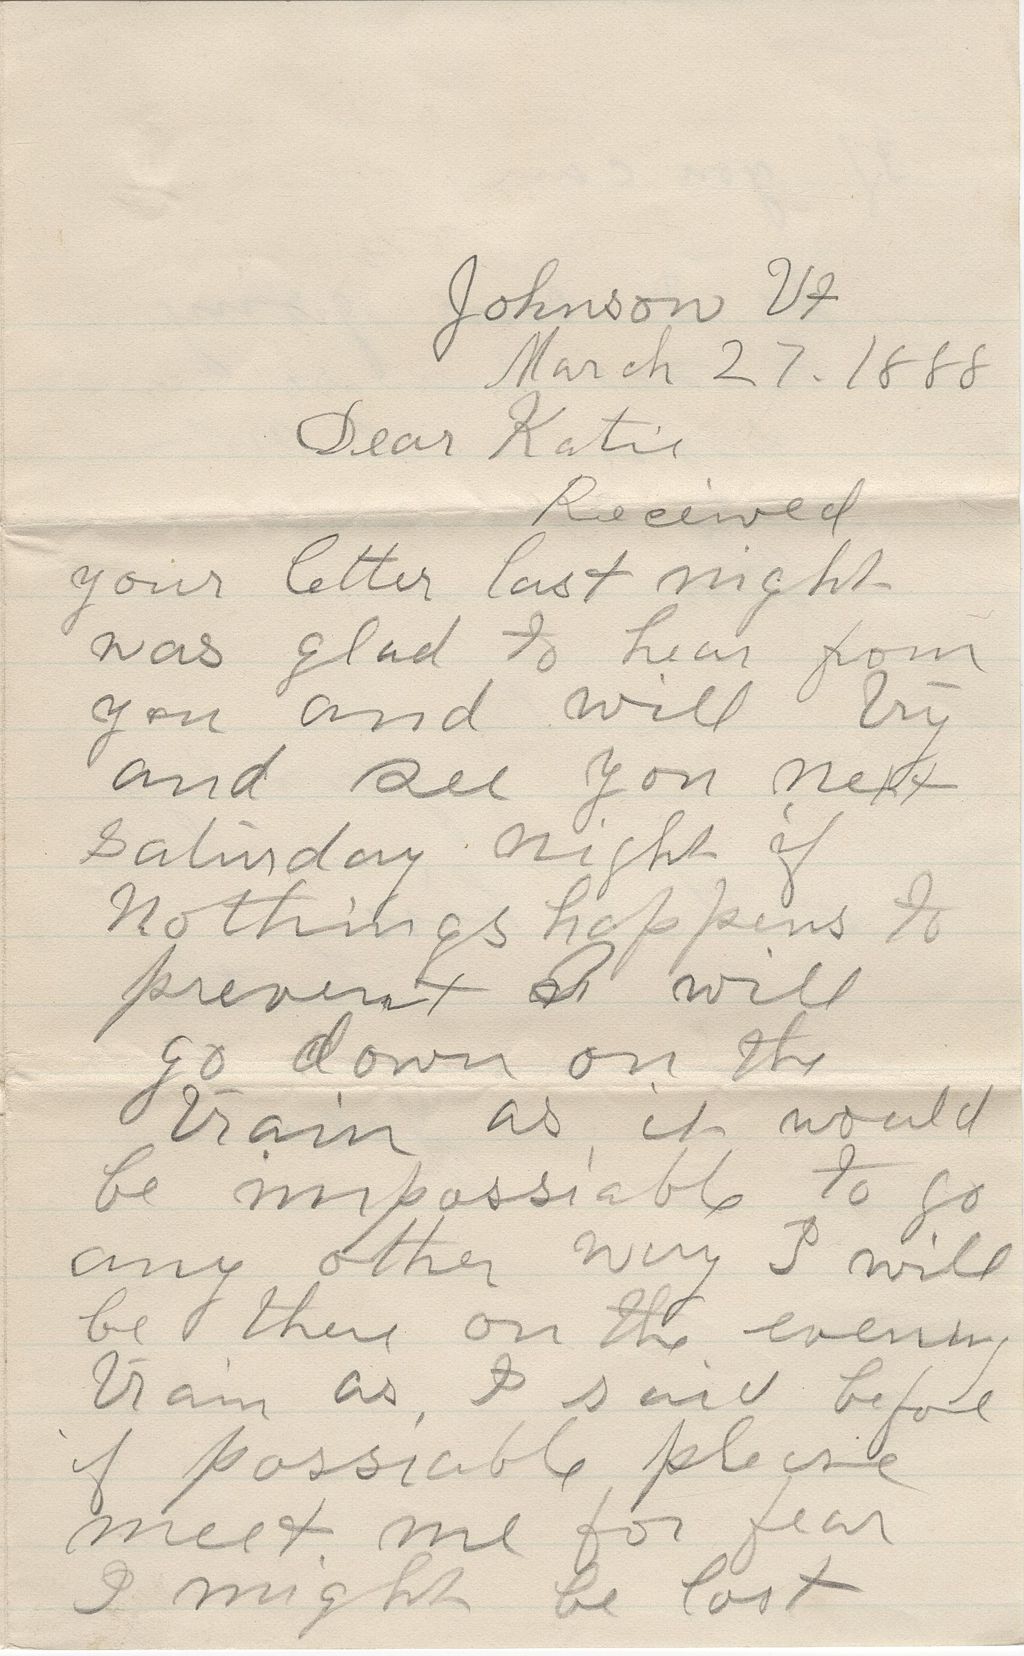 Johnson Vt
March 27. 1888
Dear Katie
Received
your letter last night
was glad to hear from
you and will try
and see you next
Saturday night if
Nothings happens to
prevent I will
go down on the
train as it would
be impossiable to go
any other way I will
be there on the evening
train as I said before
if possiable please
meet me for fear
I might be lost